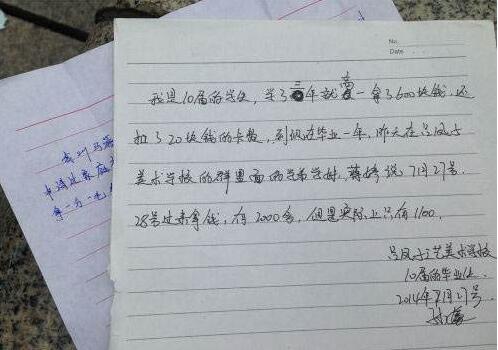 No.
Date
我是10届的学生，学了三年就高一拿了600块钱，还
扣了20块钱的卡费，到现在毕业一年，昨天在吕凤子
美术学校的群里面的学弟学妹，蒋婷说7月27号
28号过来拿钱，有2000多，但是实际上只有1100.
吕凤子工艺美术学校
10届的毕业生
2014年7月27号